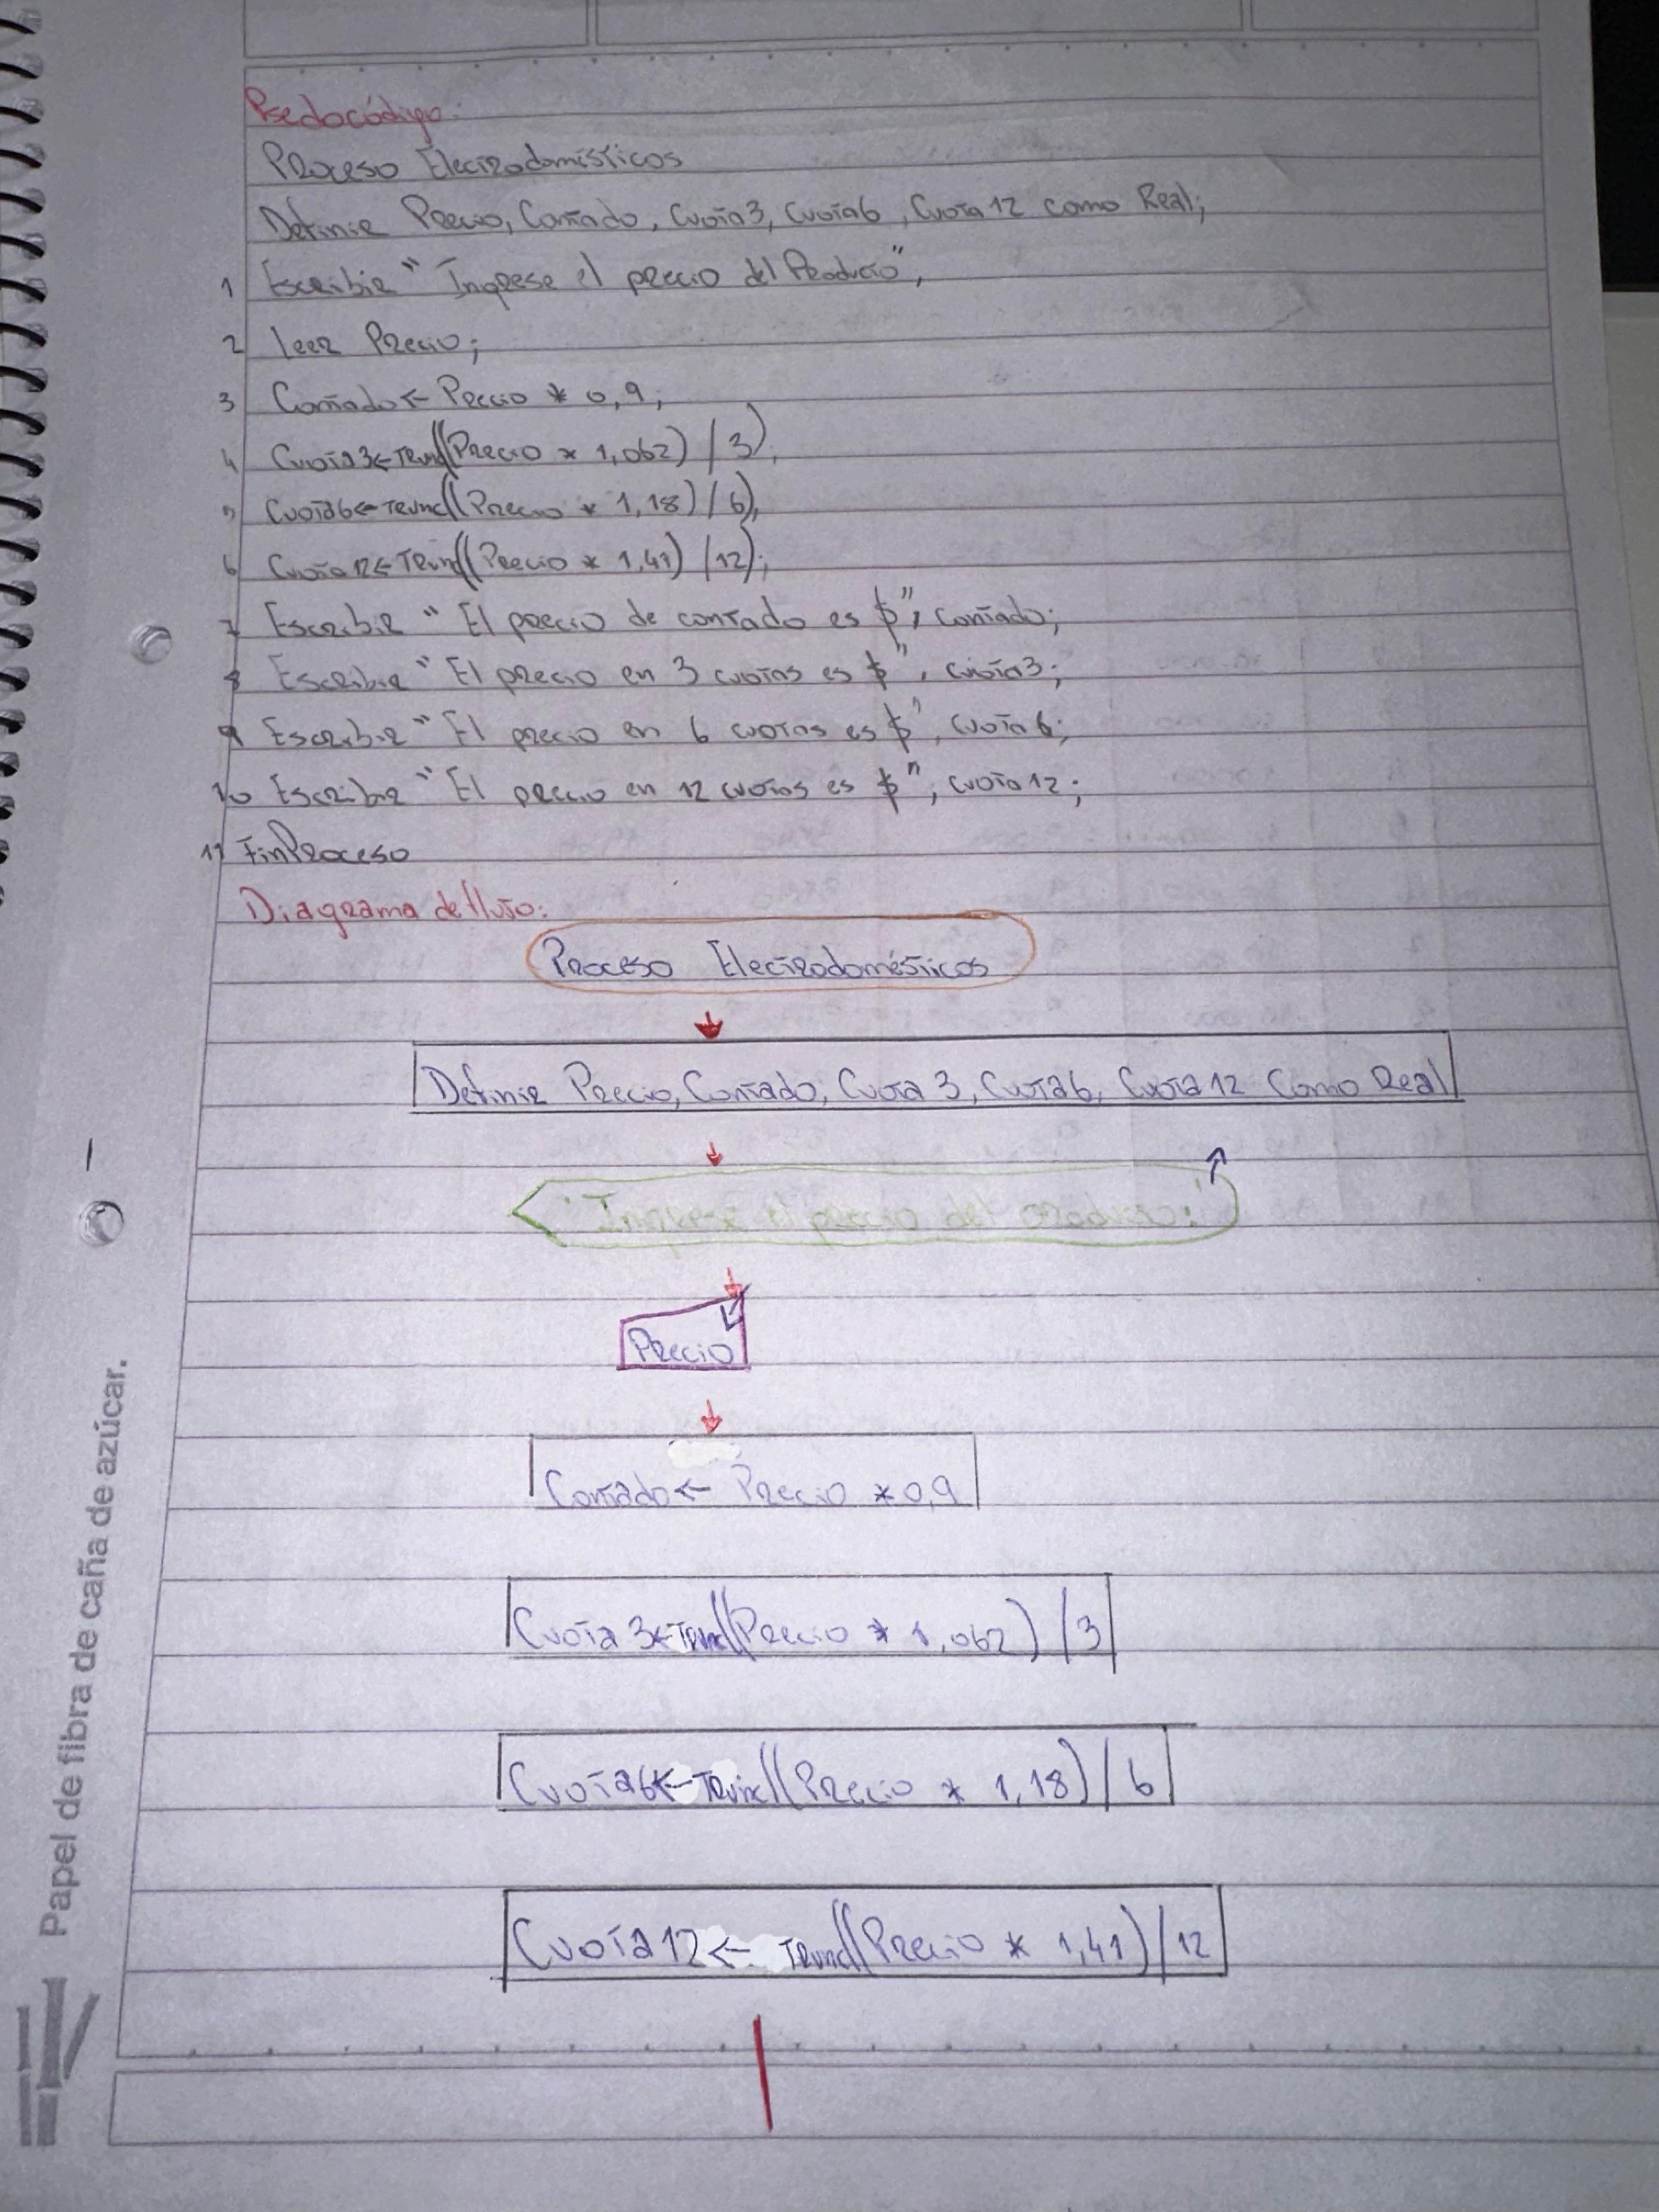 Psedocódigo:
Proceso Electrodomésticos
Definir Precio, Contado, Cuota3, Cuota6, Cuota 12 como Real;
1 Escribir "Ingrese el precio del Producto",
2 leer Precio;
3 Contado ← Precio * 0,9;
4 Cuota3 ← Trunc((Precio * 1,062) / 3);
5 Cuota6 ← Trunc((Precio * 1,18) / 6);
6 Cuota12 ← Trunc((Precio * 1,41) / 12);
7 Escribir "El precio de contado es $", Contado;
8 Escribir "El precio en 3 cuotas es $", cuota3;
9 Escribir "El precio en 6 cuotas es $", cuota 6;
10 Escribir "El precio en 12 cuotas es $", cuota 12;
11 FinProceso
Diagrama de flujo:
Proceso Electrodomésticos
Definir Precio, Contado, Cuota 3, Cuota6, Cuota 12 Como Real
"Ingrese el precio del producto:"
Precio
Contado ← Precio * 0,9
Cuota 3 ← Trunc((Precio * 1,062) / 3
Cuota6 ← Trunc((Precio * 1,18) / 6
Cuota 12 ← Trunc((Precio * 1,41) / 12
Papel de fibra de caña de azúcar.